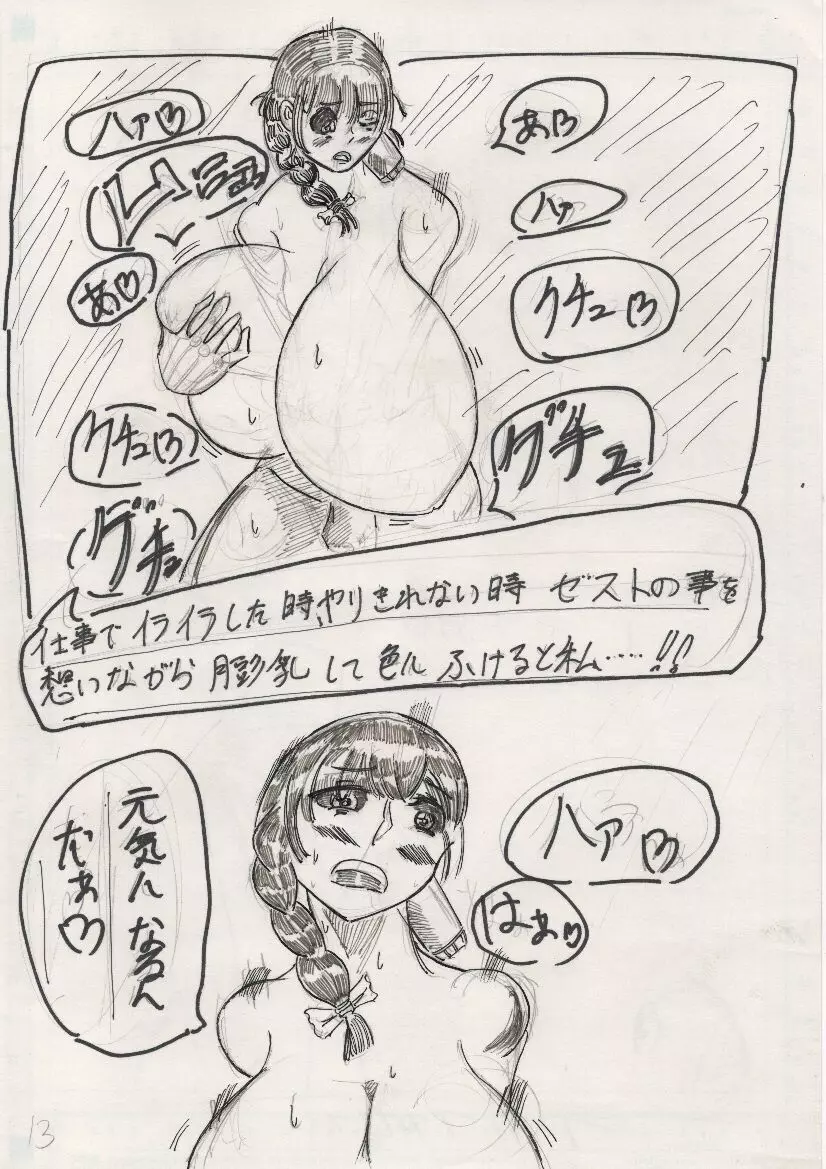 あ♡
ハァ
クチュ♡
グチュ
ハァ♡
あ♡
クチュ♡
グチュ
仕事でイライラした時、やりきれない時 ゼストの事を
想いながら して色んふけると私……!!
ハァ♡
はぁ♡
元気になるん
だぁ♡
13